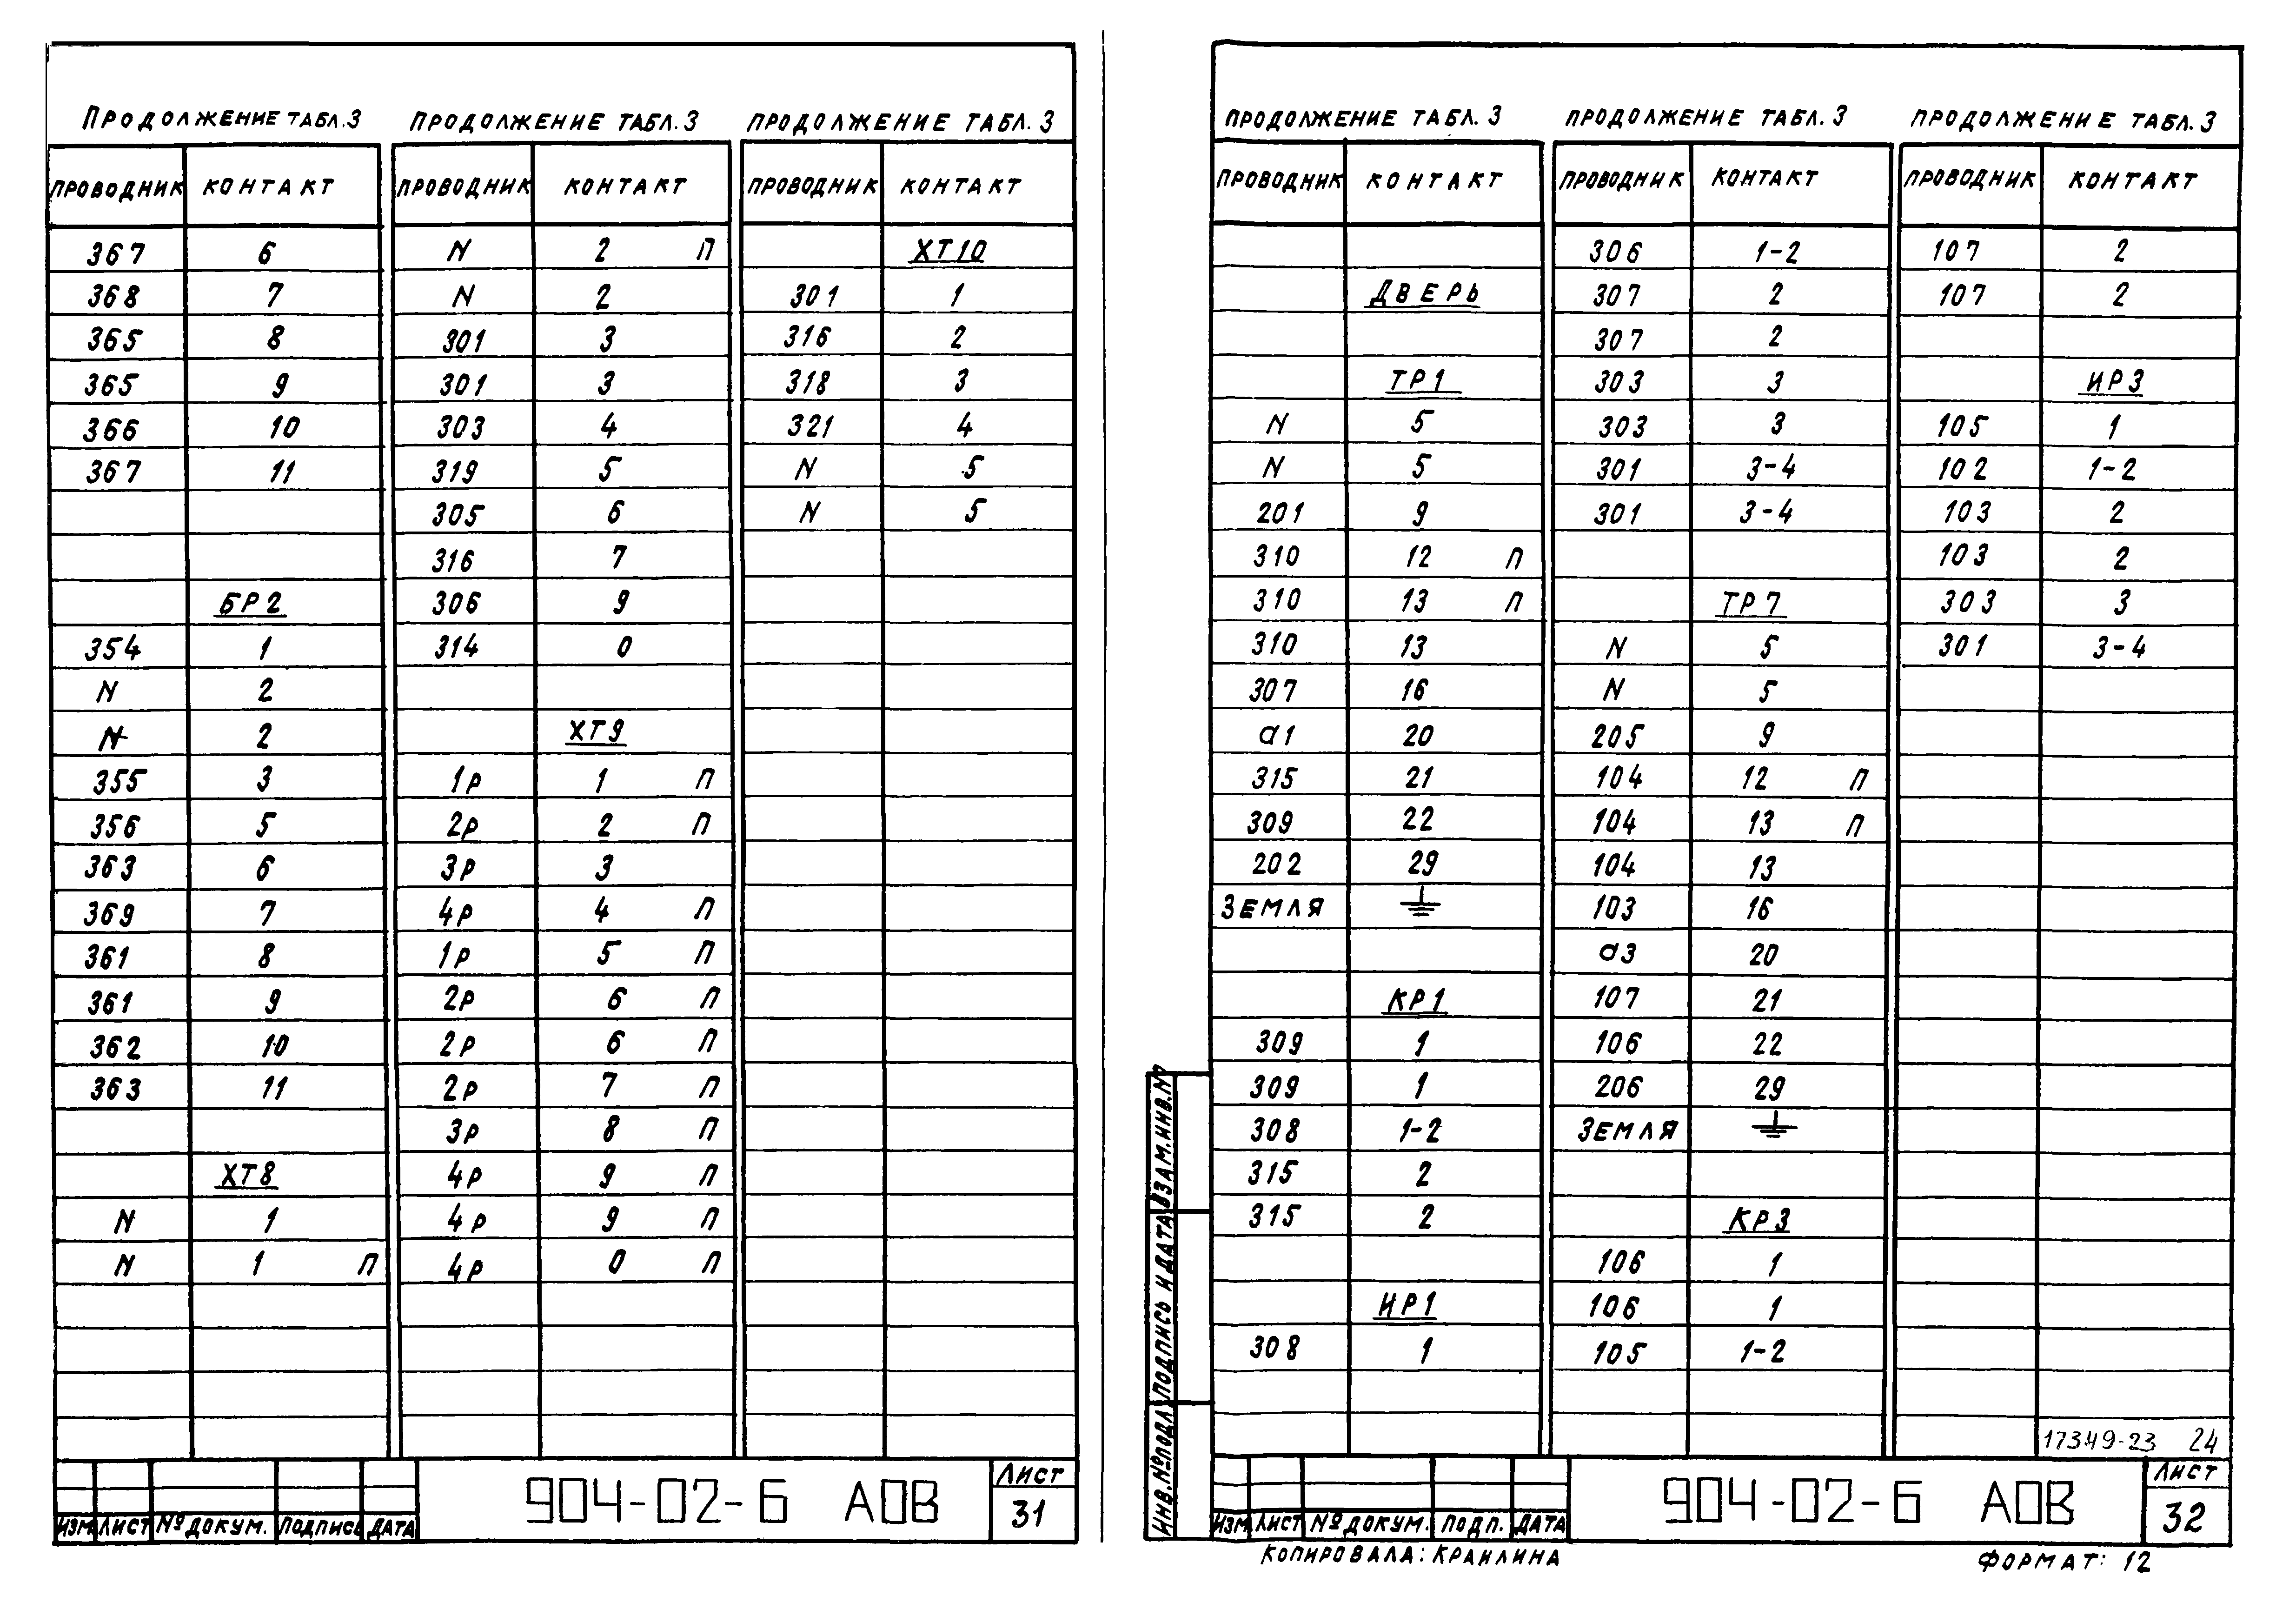 Продолжение табл.3
Проводник Контакт
367 6
368 7
365 8
365 9
366 10
367 11
БР2
354 1
N 2
N 2
355 3
356 5
363 6
369 7
361 8
361 9
362 10
363 11
ХТ8
N 1
N 1 П
Продолжение табл.3
Проводник Контакт
N 2 П
N 2
301 3
301 3
303 4
319 5
305 6
316 7
306 9
314 0
ХТ9
1Р 1 П
2Р 2 П
3Р 3
4Р 4 П
1Р 5 П
2Р 6 П
2Р 6 П
2Р 7 П
3Р 8 П
4Р 9 П
4Р 9 П
4Р 0 П
Продолжение табл.3
Проводник Контакт
ХТ10
301 1
316 2
318 3
321 4
N 5
N 5
Изм Лист № докум. Подпись Дата
904-02-6 АОВ
Лист
31
Продолжение табл.3
Проводник Контакт
ДВЕРЬ
ТР1
N 5
N 5
201 9
310 12 П
310 13 П
310 13
307 16
а1 20
315 21
309 22
202 29
ЗЕМЛЯ ⏚
КР1
309 1
309 1
308 1-2
315 2
315 2
ИР1
308 1
Продолжение табл.3
Проводник Контакт
306 1-2
307 2
307 2
303 3
303 3
301 3-4
301 3-4
ТР7
N 5
N 5
205 9
104 12 П
104 13 П
104 13
103 16
а3 20
107 21
106 22
206 29
ЗЕМЛЯ ⏚
КР3
106 1
106 1
105 1-2
Продолжение табл.3
Проводник Контакт
107 2
107 2
ИР3
105 1
102 1-2
103 2
103 2
303 3
301 3-4
17349-23 24
Инв.№подл Подпись и дата Взам.инв.№
Изм Лист № докум. Подп. Дата
904-02-6 АОВ
Лист
32
Копировала: Кранлина
Формат: 12